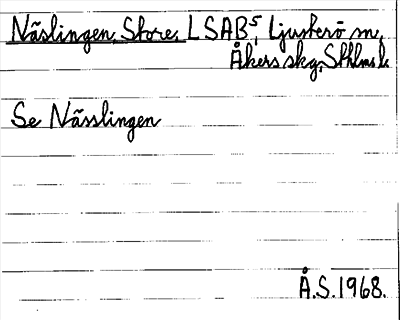 Näslingen, Store, LSAB⁵, Ljusterö sn,
Åkers skg, Sthlms l.
Se Nässlingen
Å.S. 1968.